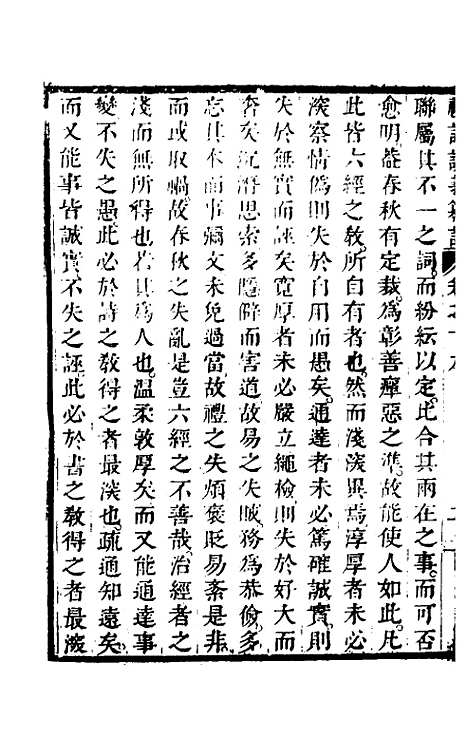 聯屬其不一之詞而紛紜以定此合其兩在之事而可否
愈明蓋春秋有定裁為彰善癉惡之準故能使人如此凡
此皆六經之教所自有者也然而淺深異焉淳厚者未必
深察情僞則失於自用而愚矣通達者未必篤確誠實則
失於無實而誣矣寬厚者未必嚴立繩檢則失於好大而
奢矣沉潛思索多隱僻而害道故易之失賊務為恭儉多
忘其本而事彌文未免過當故禮之失煩褒貶易紊是非
而或取禍故春秋之失亂是豈六經之不善哉治經者之
淺而無所得也若其為人也溫柔敦厚矣而又能通達事
變不失之愚此必於詩之教得之者最深也疏通知遠矣
而又能事皆誠實不失之誣此必於書之教得之者最深